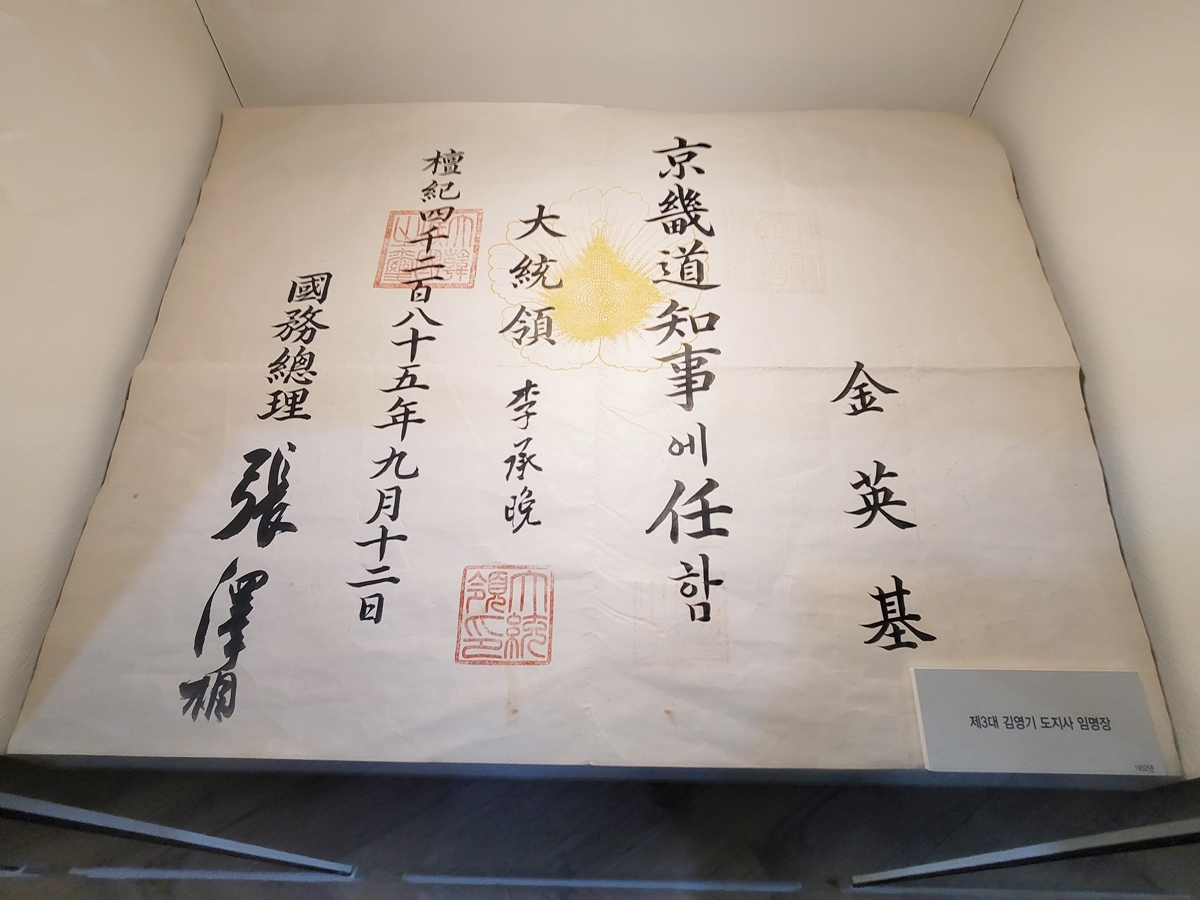 金英基
京畿道知事에任함
大統領 李承晩
大統領印
檀紀四千二百八十五年九月十二日
國務總理 張澤相
제3대 김영기 도지사 임명장
1952년